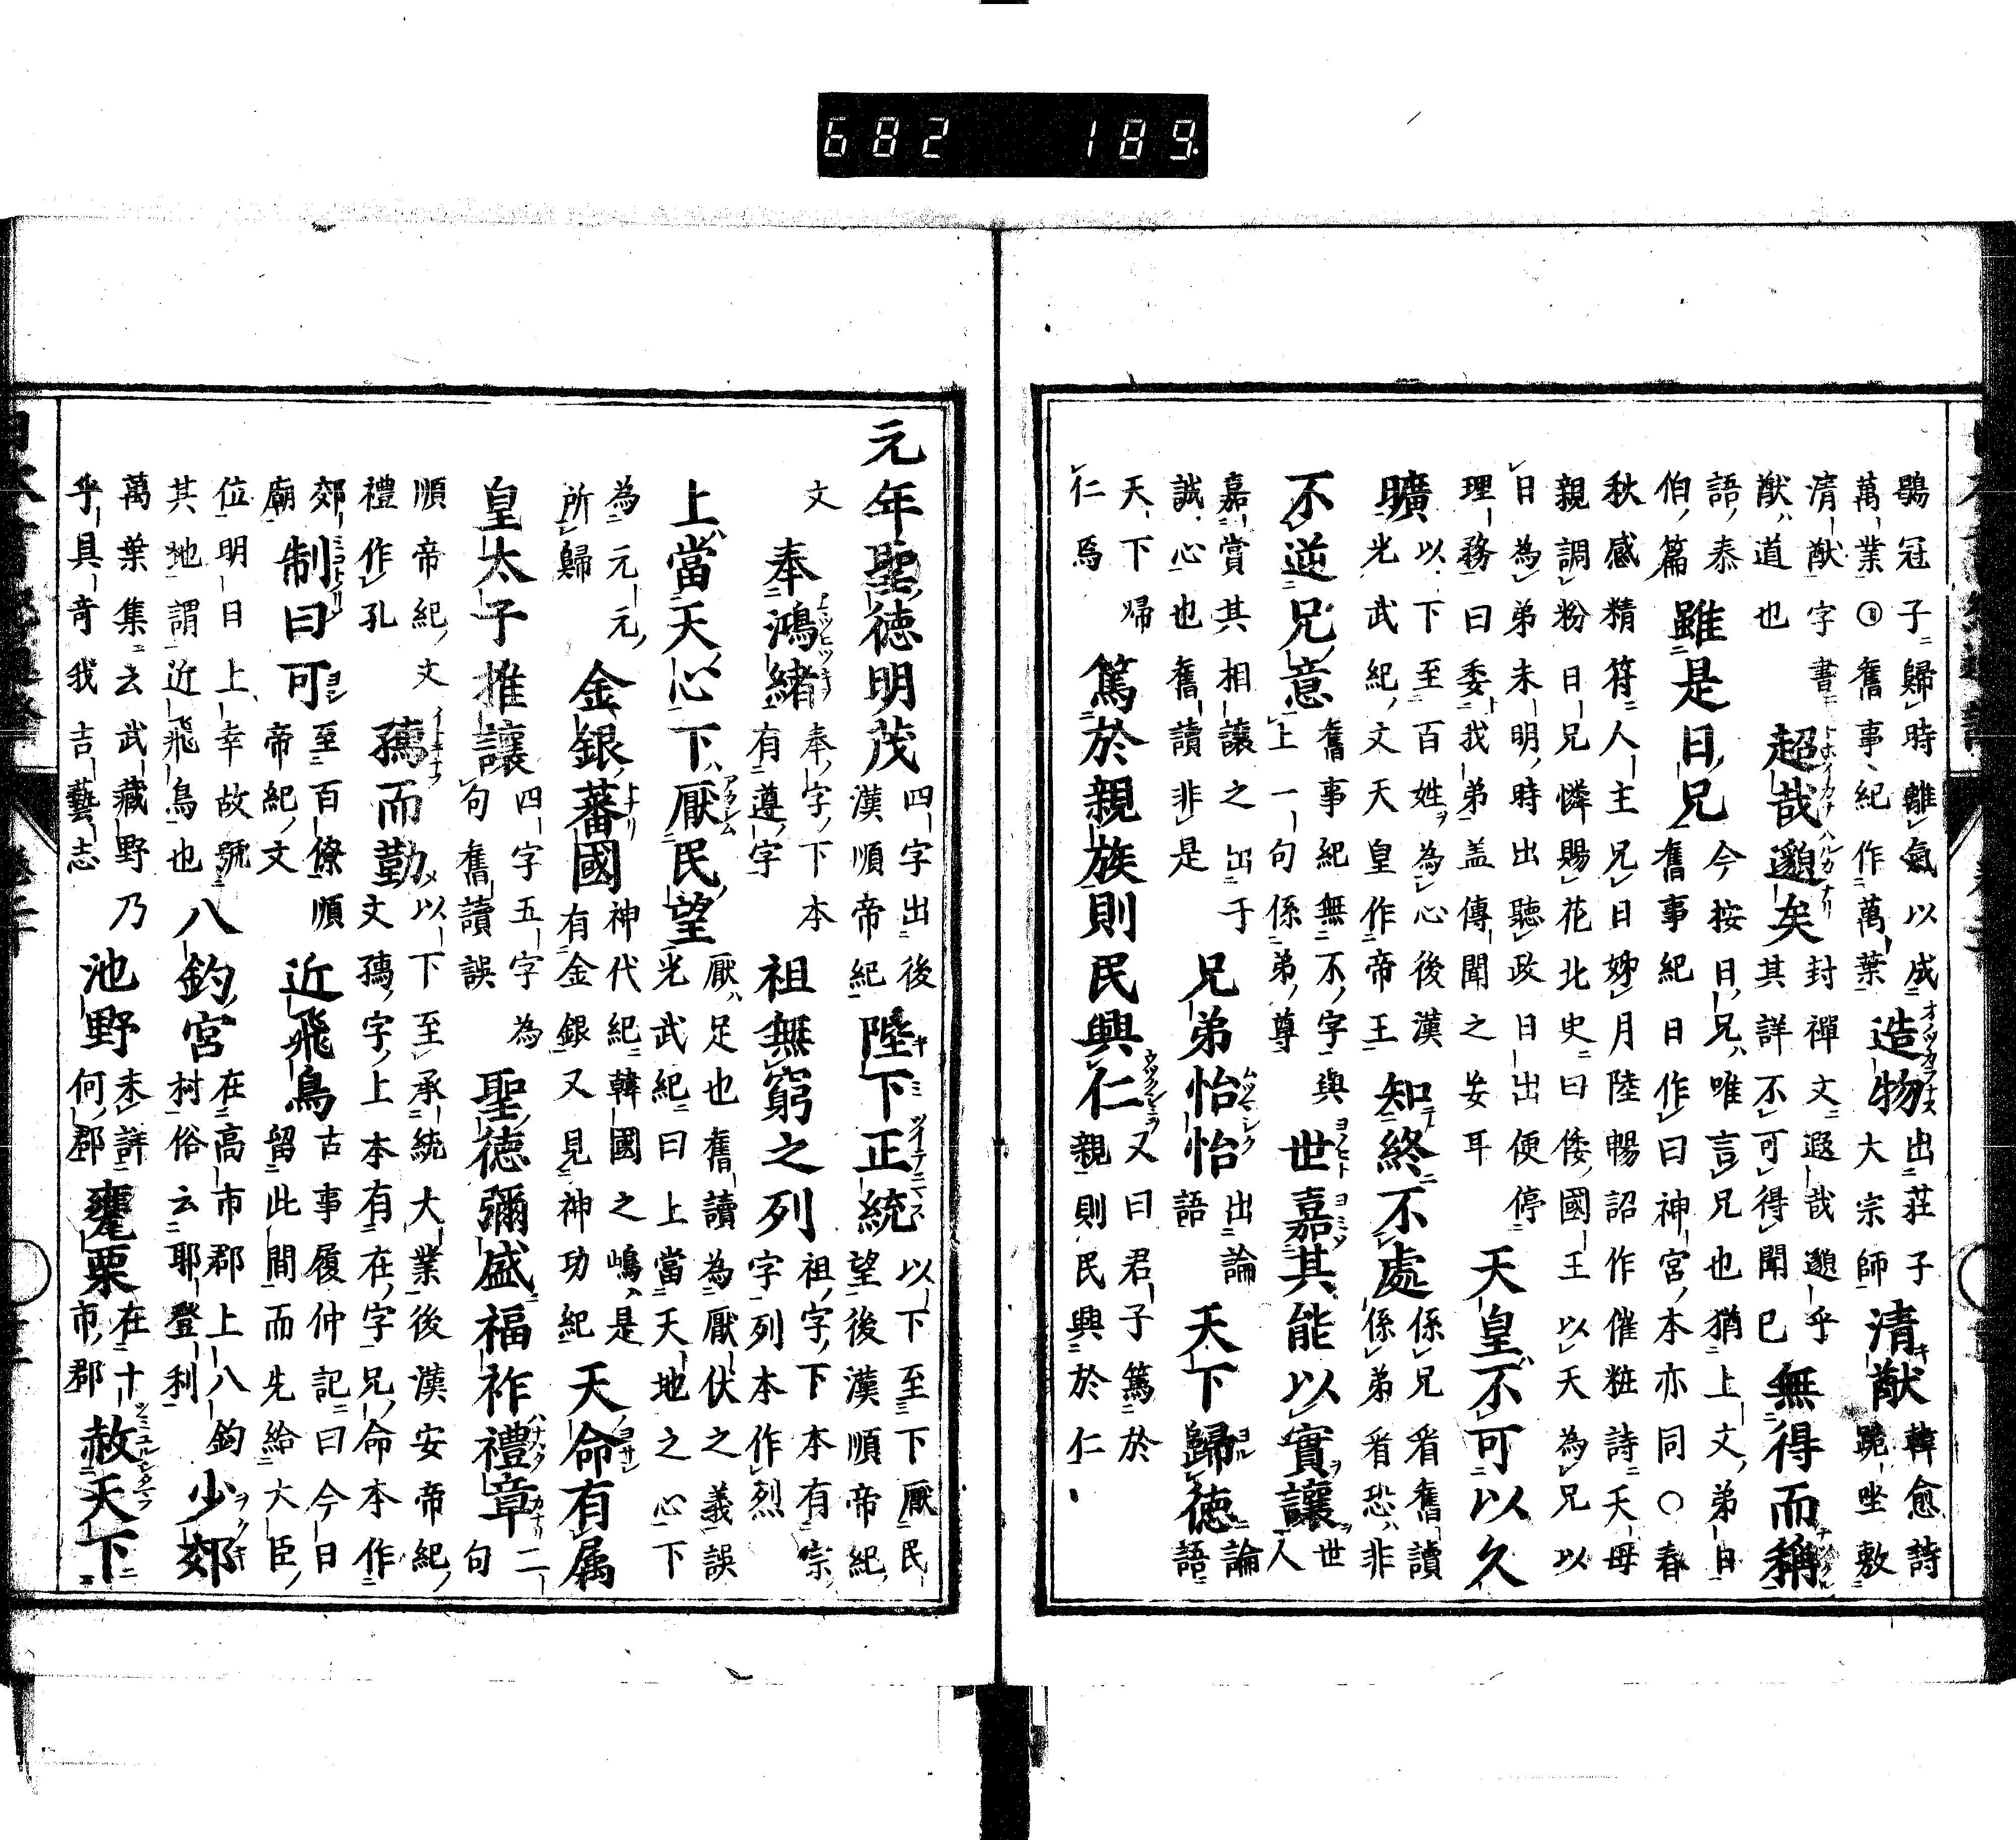 682 189
鶡冠子歸時離氣以成造物出莊子大宗師清猷韓愈詩跪坐敷
萬業舊事紀作萬葉
清猷字書超哉邈矣封禪文遐哉邈乎其詳不可得聞已無得而稱
猷道也
語泰伯篇雖是曰兄今按日兄唯言兄也猶上文弟曰舊事紀曰作曰神宮本亦同〇春
秋感精符人主兄日姊月陸暢詔作催粧詩天母
親調粉日兄憐賜花北史曰倭國王以天為兄以
日為弟未明時出聽政日出便停
理務曰委我弟盖傳聞之妄耳天皇不可以久
曠以下至百姓為心後漢光武紀文天皇作帝王知終不處係兄者舊讀係弟者恐非
不逆兄意舊事紀無不字與上一句係弟尊世嘉其能以實讓世人
嘉賞其相讓之出于
誠心也舊讀非是兄弟怡怡出論語天下歸德論語
天下帰仁焉篤於親族則民興仁又曰君子篤於親則民興於仁
元年聖徳明茂四字出後漢順帝紀陛下正統以下至下厭民望後漢順帝紀
文奉鴻緒奉字下本有遵字祖無窮之列祖字下本有宗字列本作烈
上當天心下厭民望厭足也舊讀為厭伏之義誤光武紀曰上當天地之心下
為元元所歸金銀蕃國神代紀韓國之嶋是有金銀又見神功紀天命有属
皇太子推讓四字五字為句舊讀誤聖徳彌盛福祚禮章二句
順帝紀文孺而勤以下至承統大業後漢安帝紀文孺字上本有在字兄命本作
禮作孔
郊廟制曰可至百僚順帝紀文近飛鳥古事履仲記曰今日留此間而先給大臣
位明日上幸故號其地謂近飛鳥也八釣宮在高市郡上八釣村俗云耶登利少郊
萬葉集云武藏野乃乎具奇我吉藝志池野未詳何郡甕栗在十市郡赦天下